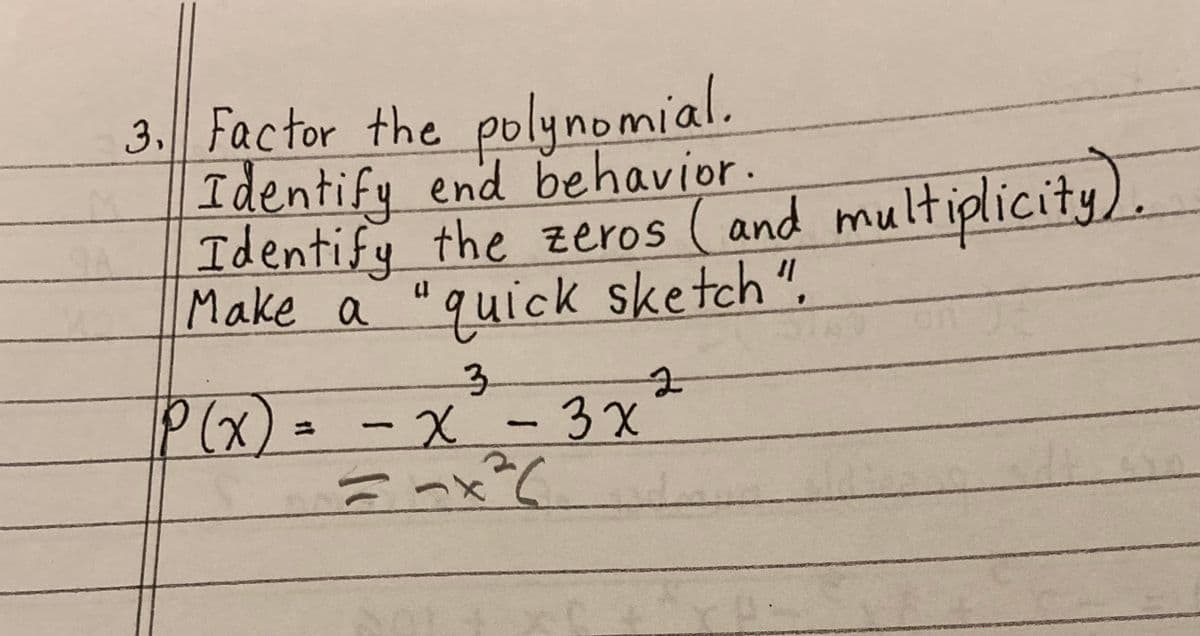 3. Factor the polynomial.
Identify end behavior.
Identify the zeros (and multiplicity).
Make a "quick sketch".
P(x) = - x³ - 3x²
= -x²(